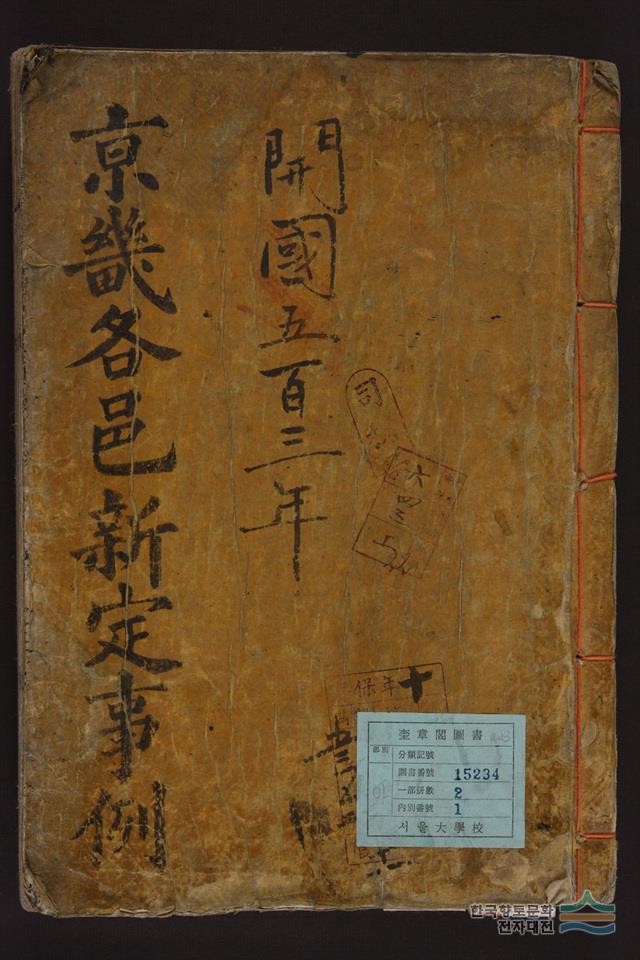 開國五百三年
京畿各邑新定事例
司
六四三
保年
十
奎章閣圖書
部別
分類記號
圖書番號 15234
一部冊數 2
內別番號 1
서울大學校
한국향토문화
전자대전